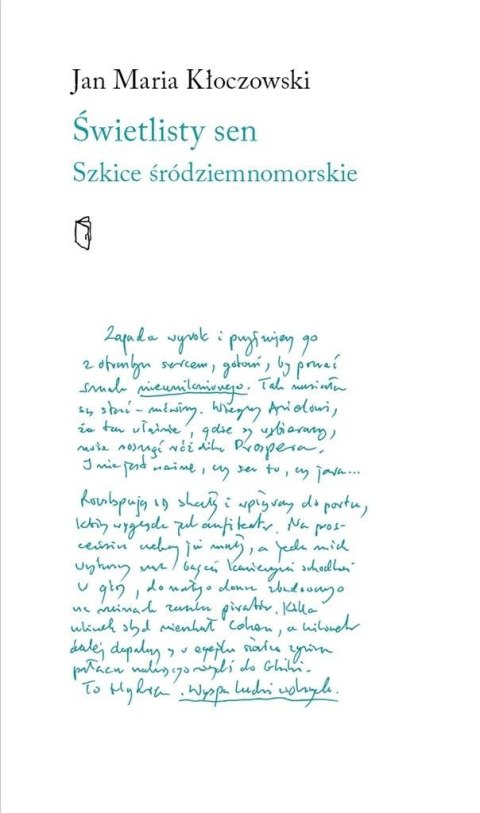 Jan Maria Kłoczowski
Świetlisty sen
Szkice śródziemnomorskie
Zapada wyrok i przyjmujemy go
z otwartym sercem, gotowi, by poznać
smak nieuniknionego. Tak musiało
się stać – mówimy. Wierzymy Arielowi,
że tam właśnie, gdzie się wybieramy,
może dosięgnąć różdżka Prospera.
I nie jest ważne, czy sen to, czy jawa...
Rozstępują się skały i wpływamy do portu,
który wygląda jak amfiteatr. Na
a jeden z nich
schodkami
w górę, do małego domu zbudowanego
na ruinach zamku piratów. Kilka
uliczek stąd mieszkał Cohen, a kilometr
dalej
do Ghiki.
To Hydra. Wyspa ludzi wolnych.